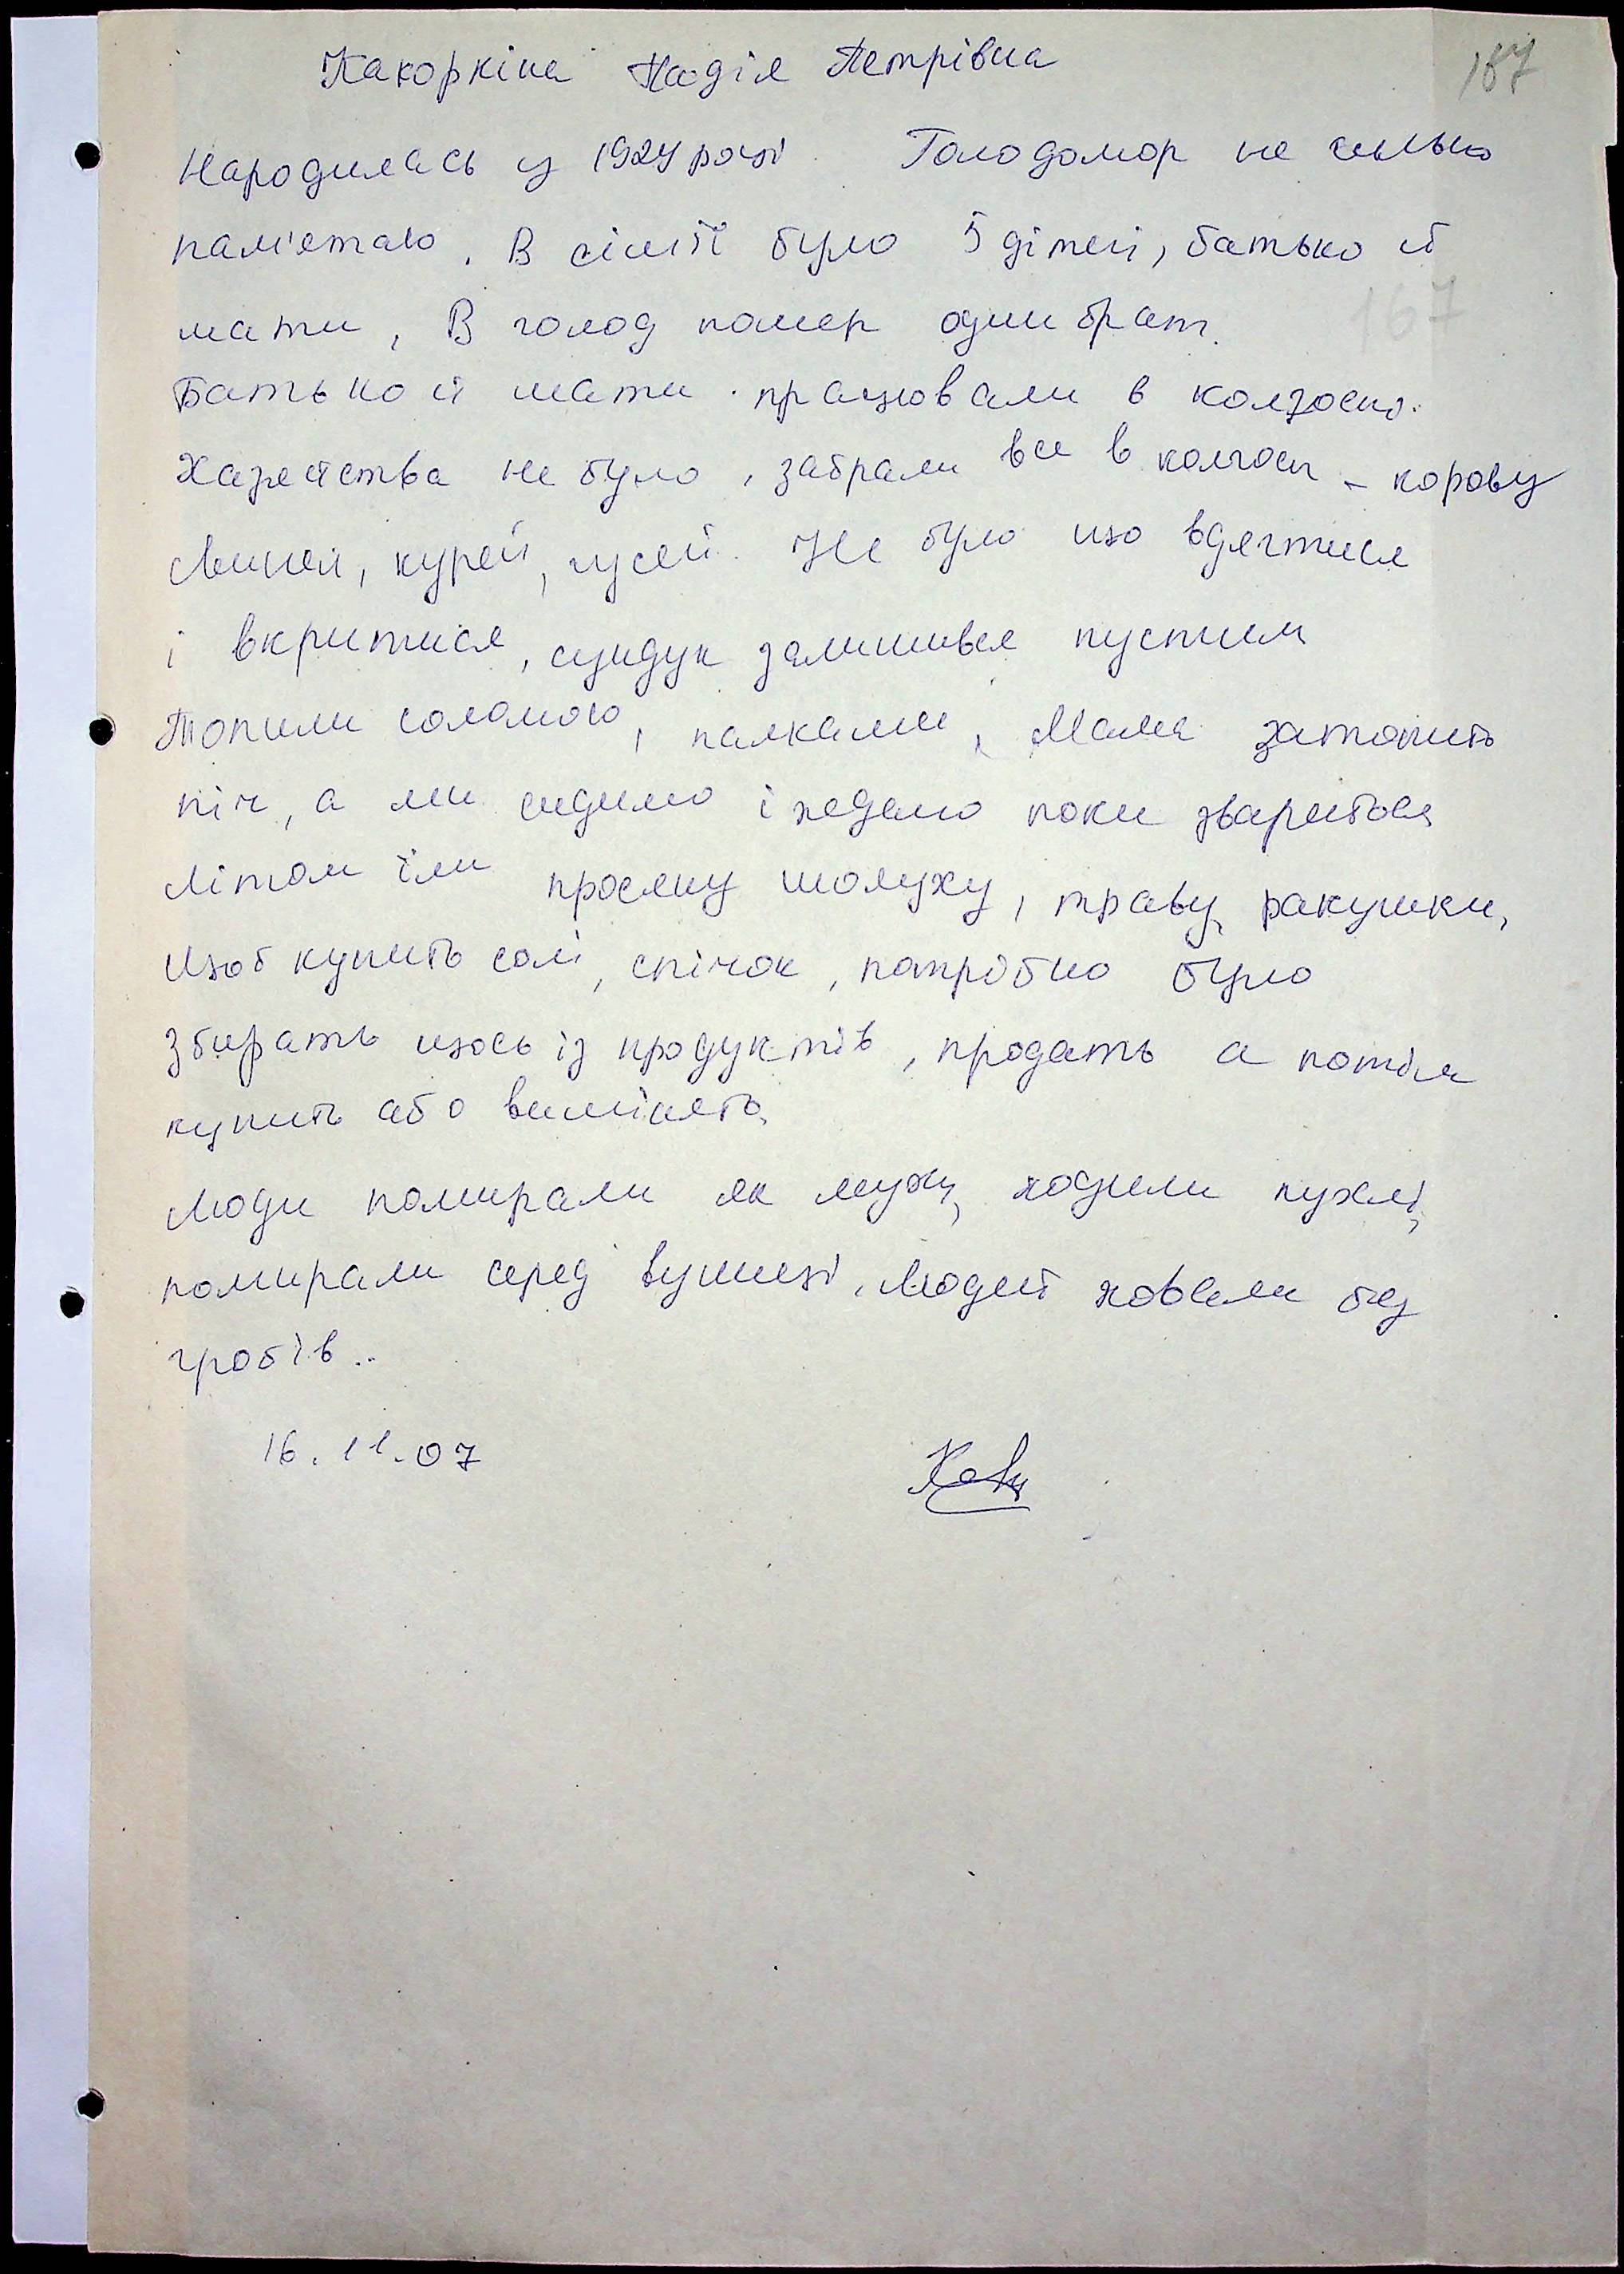 Какоркіна Надія Петрівна
167
Народилась у 1924 році Голодомор не сильно
пам'ятаю. В сім'ї було 5 дітей, батько й
мати, В голод помер один брат.
167
Батько й мати працювали в колгоспі.
Хазяйства не було, забрали все в колгосп - корову
свиней, курей, гусей. Не було що вдягтися
і вкритися, сундук залишився пустим
Топили соломою, палками, Мама затопить
піч, а ми сидимо і ждемо поки звариться
Літом їли просяну шолуху, траву, ракушки,
Щоб купить солі, спічок, потрібно було
збирать щось із продуктів, продать а потім
купить або вимінять.
Люди помирали як мухи, ходили пухлі,
помирали серед вулиці. Людей ховали без
гробів..
16.11.07